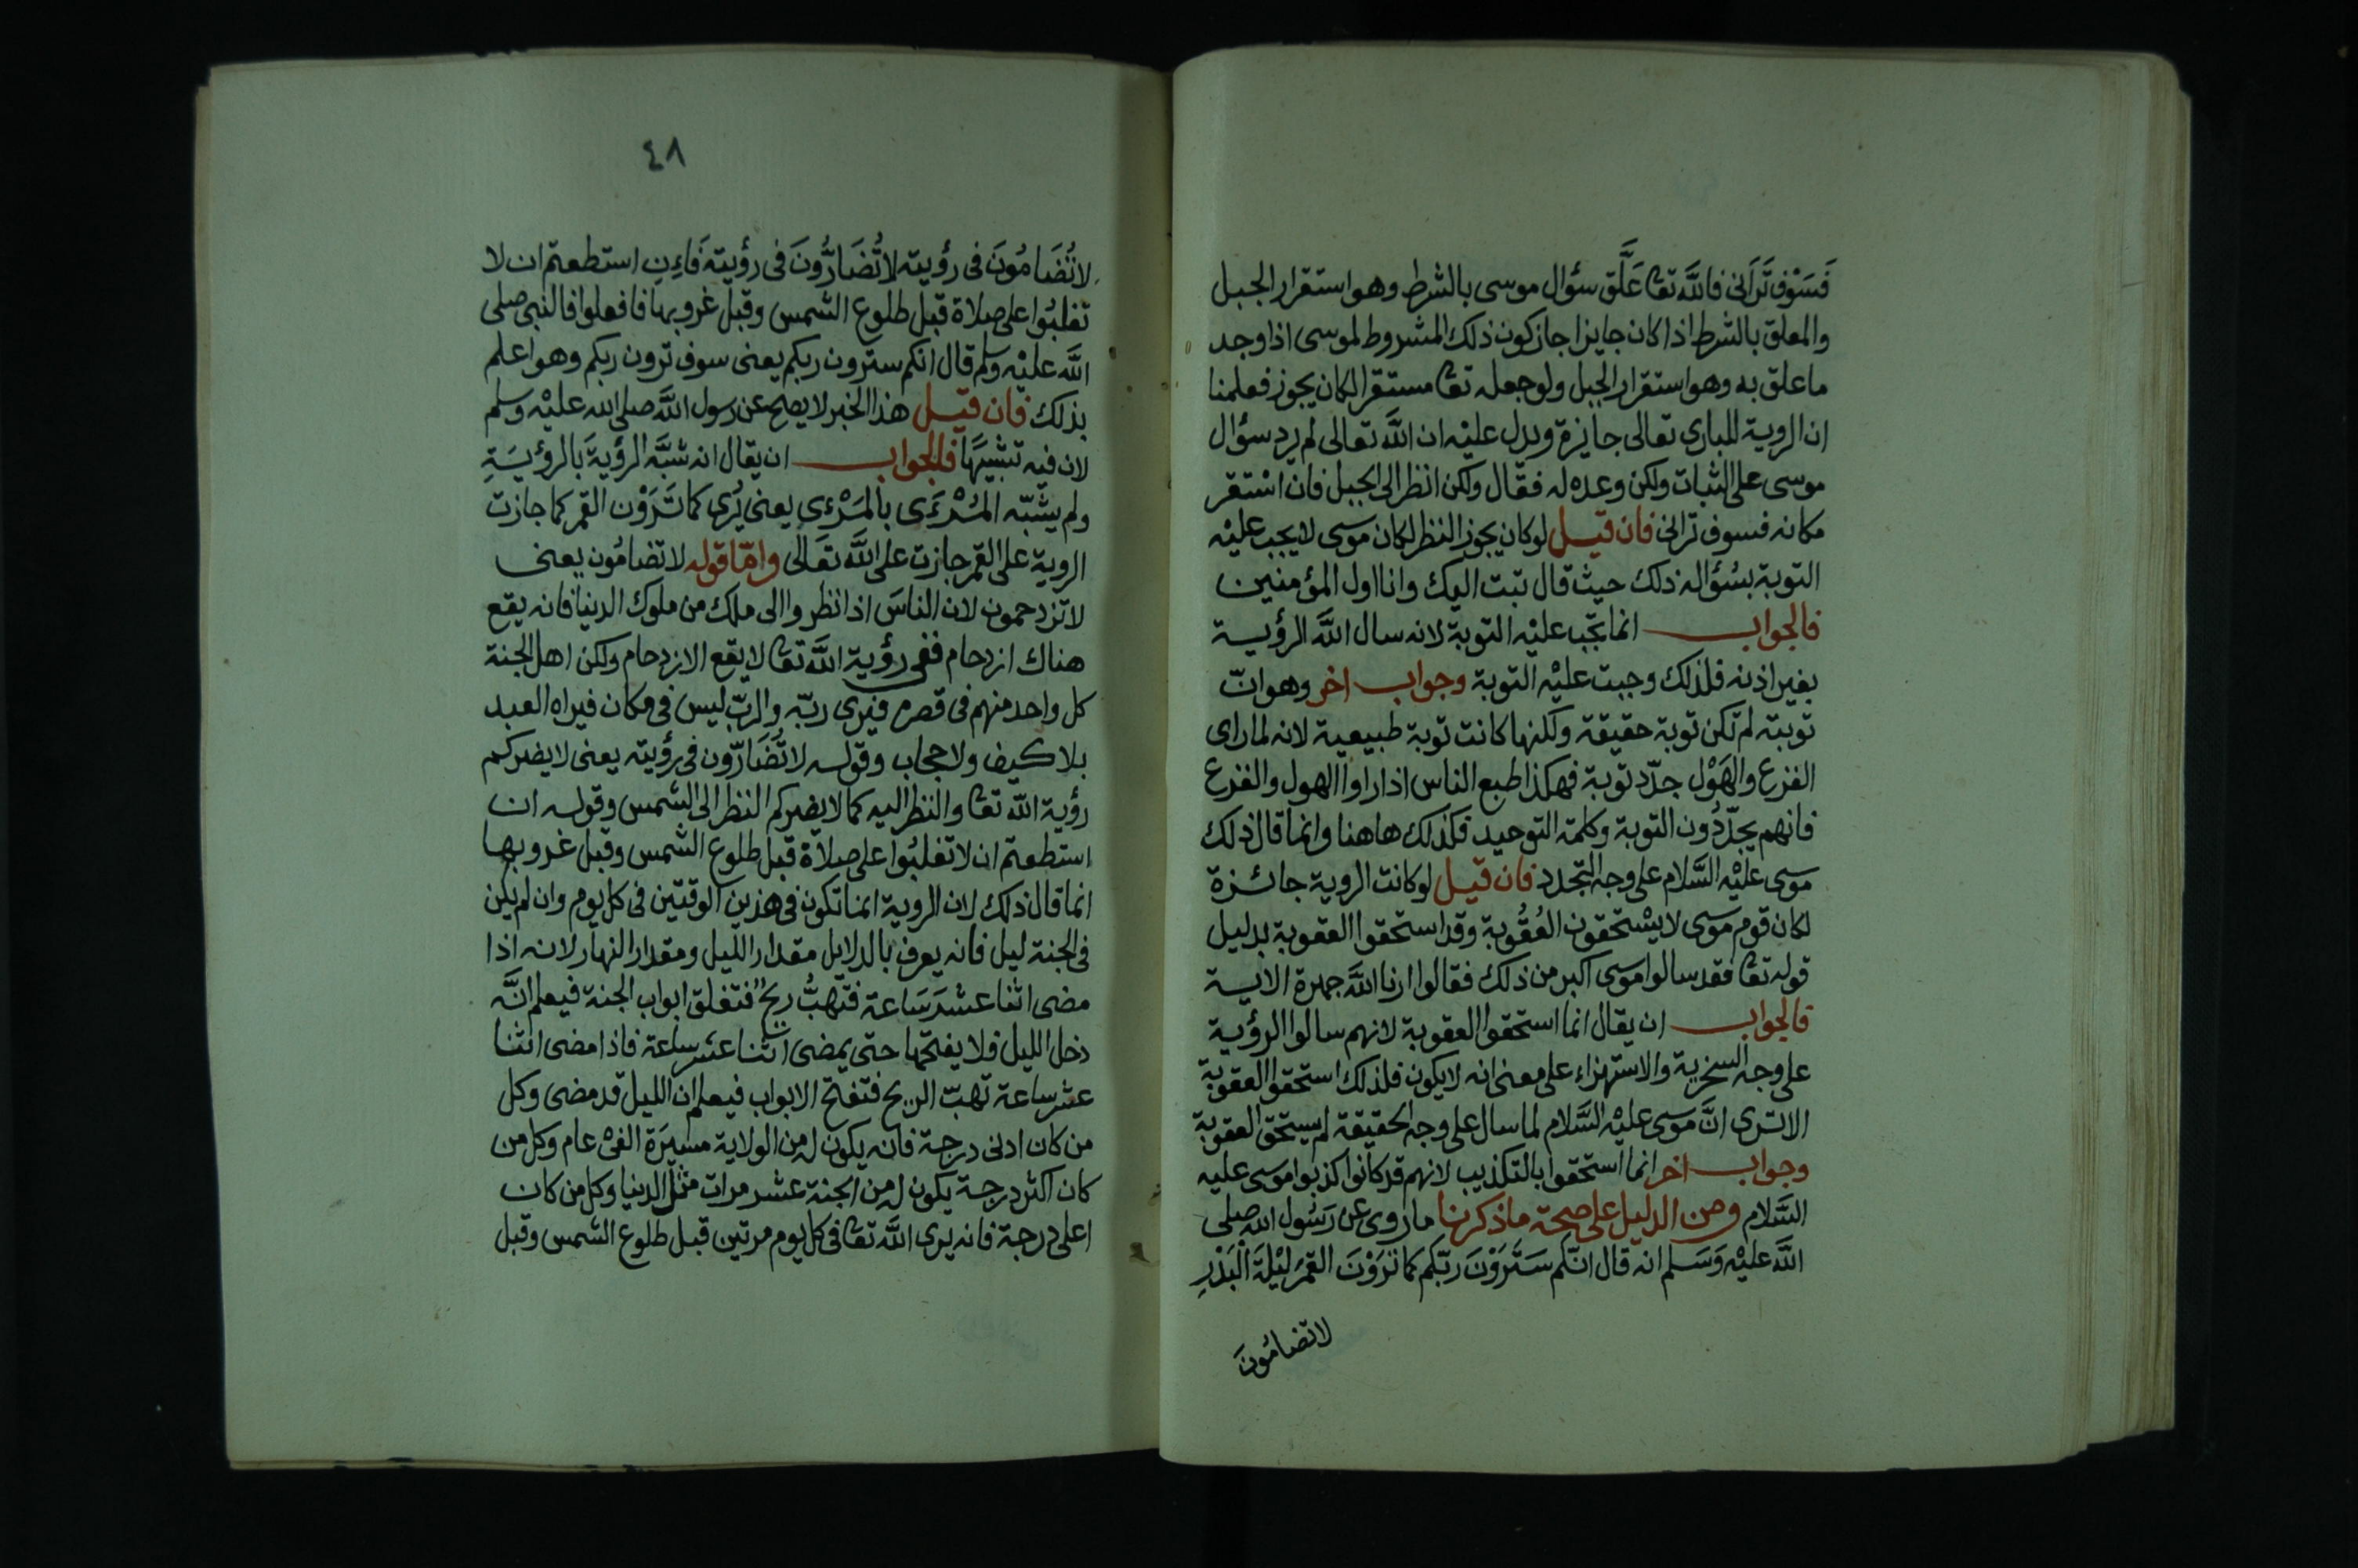 فَسَوْف تَرَانى فالله تعا عَلَّق سؤال موسى بالشرط وهو استقرار الجبل
والمعلق بالشرط اذا كان جايزا جاز كون ذلك المشروط لموسى اذا وجد
ما علق به وهو استقرار الجبل ولو جعله تعا مستقرا لكان يجوز فعلمنا
ان الروية للبارى تعالى جايزة ويدل عليْه ان الله تعالى لم يرد سؤال
موسى على الثبات ولكن وعده له فقال ولكن انظر الى الجبل فان اسْتقر
مكانه فسوف ترانى فان قيل لو كان يجوز النظر لكان موسى لا يجب عليْه
التوبة بسُؤاله ذلك حيث قال تبت اليك وانا اول المؤمنين
فالجواب انما تجب عليْه التوبة لانه سال الله الرؤيسة
بغير اذنه فلذلك وجبت عليْه التوبة وجواب اخر وهو انّ
توبته لم تكن توبة حقيقة ولكنها كانت توبة طبيعية لانه لما راى
الفزع والهَوْل جدّد توبة فهكذا طبع الناس اذا راوا الهول والفزع
فانهم يجدّدُون التوبة وكلمة التوحيد فكذلك هاهنا وانما قال ذلك
موسى عليْه السَّلام على وجه التجدد فان قيل لو كانت الروية جائزة
لكان قوم موسى لا يسْتحقون العُقُوبة وقد استحقوا العقوبة بدليل
قوله تعا فقد سالوا موسى اكبر من ذلك فقالوا ارنا الله جهرة الاية
فالجواب ان يقال انما استحقوا العقوبة لانهم سالوا الرؤية
على وجه السخرية والاستهزاء على معنى انه لا يكون فلذلك استحقوا العقوبة
الا ترى انَّ موسى عليْه السَّلام لما سال على وجه الحقيقة لم يستحق العقوبة
وجواب اخر انما استحقوا بالتكذيب لانهم قد كانوا كذبوا موسى عليه
السَّلام ومن الدليل على صحة ما ذكرنا ما روى عن رَسُول الله صلى
الله عليْه وَسَلم انه قال انّكم سَتَرَوْنَ ربّكم كما تَرَوْنَ القمَر ليْلَةَ الْبَدْرِ
لا تضامُونَ
٤٨
لا تُضَامُونَ فى رؤيته لا تُضَارُّونَ فى رؤيته فَاِنِ استطعتم ان لا
تغلبُوا على صلاة قبل طلوع الشمس وقبل غروبها فافعلوا فالنبى صلى
الله عليْه وسلم قال انكم سترون ربكم يعنى سوف ترون ربكم وهو اعلم
بذلك فان قيل هذا الخبر لا يصح عن رسول الله صلى الله عليْه وسلم
لان فيه تشبيهًا فالجواب ان يقال انه شبَّه الرؤيةَ بالرؤيَةِ
ولم يشبّه المَرْءَى بالمَرْءِى يعنى يُرى كما تَرَوْن القمر كما جازت
الروية على القمر جازت على الله تعَالى وامّا قوله لا تضامُون يعنى
لا تزدحمون لان الناسَ اذا نظروا الى ملك من ملوك الدنيا فانه يقع
هناك ازدحام ففى رؤية الله تعا لا يقع الازدحام ولكن اهل الجنة
كل واحد منهم فى قصره فيرى ربّه والربّ ليس فى مكان فيراه العبد
بلا كيف ولا حجاب وقوله لا تُضَارّون فى رؤيته يعنى لا يضركم
رؤية الله تعا والنظر اليه كما لا يضركم النظر الى الشمس وقوله ان
استطعتم ان لا تغلبُوا على صلاة قبل طلوع الشمس وقبل غروبها
انما قال ذلك لان الروية انما تكون فى هذين الوقتين فى كل يوم وان لم يكن
فى الجنة ليل فانه يعرف بالدلايل مقدار الليل ومقدار النهار لانه اذا
مضى اثنا عشر سَاعة فتهبُّ ريحٌ فتغلق ابواب الجنة فيعلم انَّه
دخل الليل فلا يفتحها حتى يمضى اثنا عشر ساعة فاذا مضى اثنا
عشر ساعة تهبّ الريح فتفتح الابواب فيعلم ان الليل قد مضى وكل
من كان ادنى درجة فانه يكون له من الولاية مسيرَة الفىْ عام وكل من
كان اكثر درجة يكون له من الجنة عشر مرات مثل الدنيا وكل من كان
اعلى درجة فانه يرى الله تعا فى كل يوم مرتين قبل طلوع الشمس وقبل